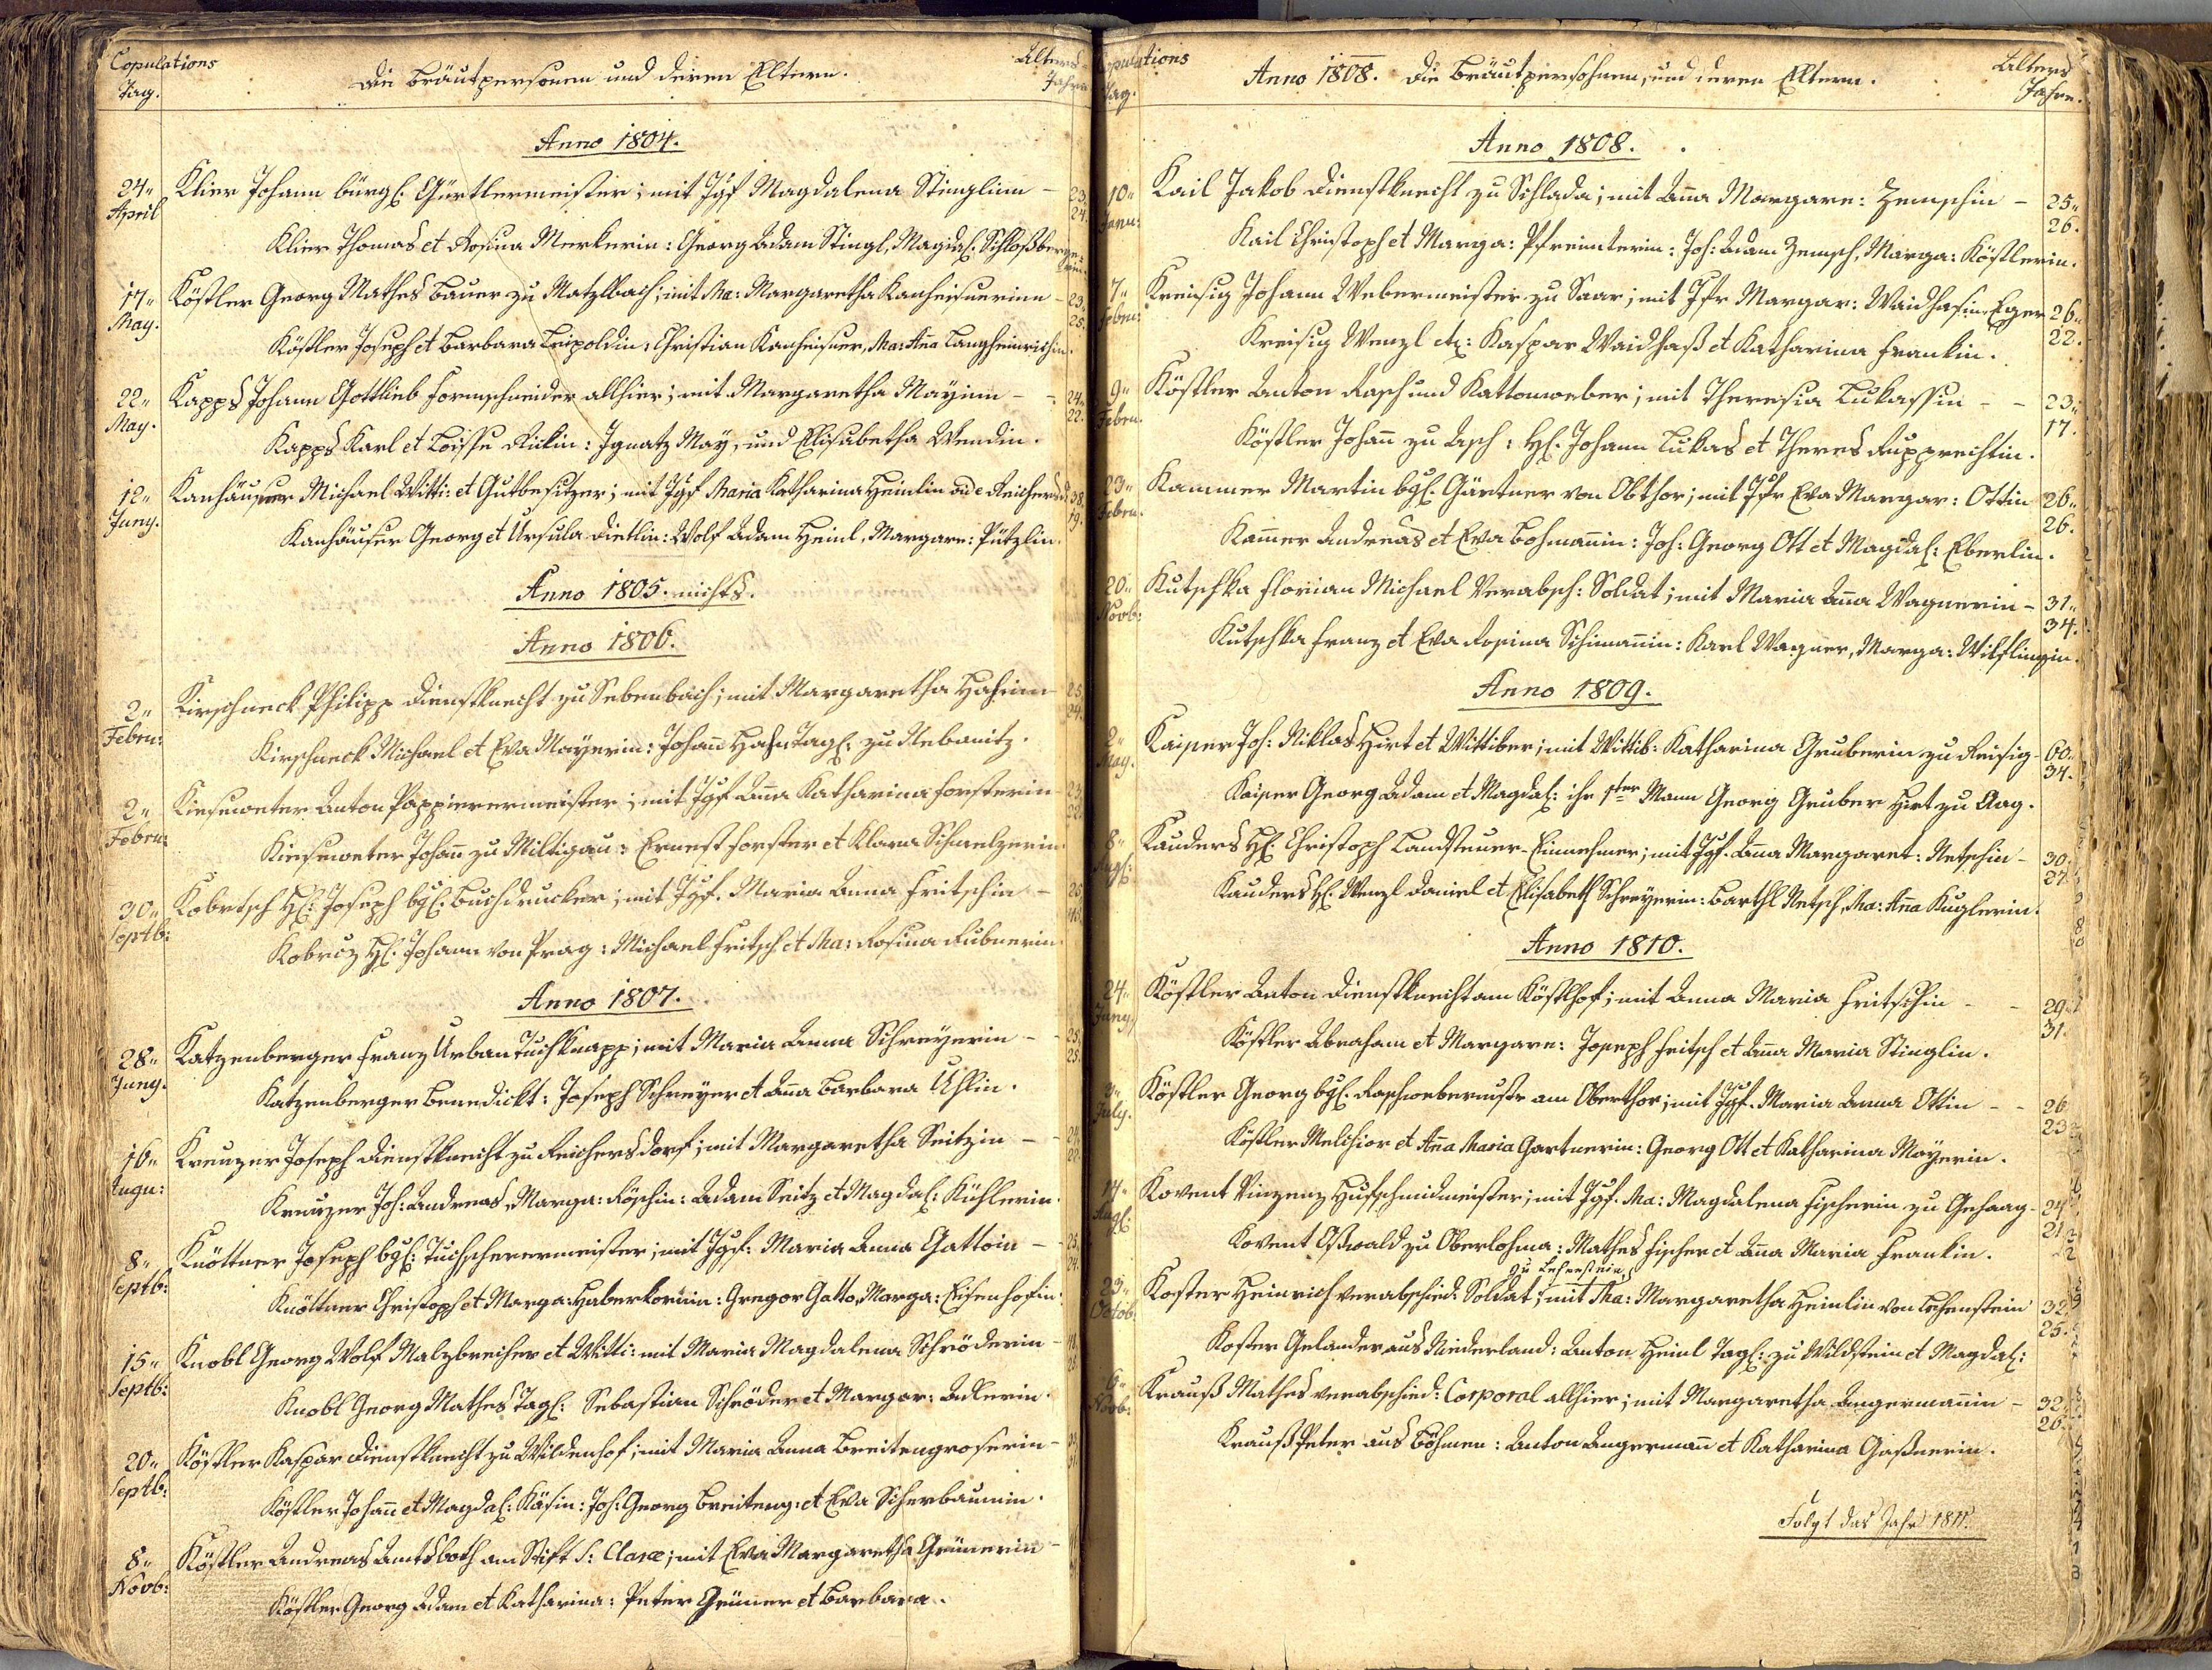 Copulations Tag. Die Brautpersonen und deren Eltern. Alters Jahre
Anno 1804.
24. April Klier Johann bürgl: Gürtlermeister; mit Jgf Magdalena Stinglinn - 23. 24.
Klier Thomas et Rosina Merkerin: Georg Adam Stingl, Magdal: Schloßberge=rin.
17. May. Köstler Georg Mathes Bauer zu Matzlbach; mit Ma: Margaretha Kanheiserinn - 23. 25.
Köstler Joseph et Barbara Leipoldin: Christian Kanheiser, Ma: Ana Langheinrichin.
22. May. Kapps Johann Gottlieb Formschneider allhier; mit Margaretha Mayinn - - 24. 22.
Kapps Karl et Loisse Rickin: Ignatz May, und Elisabetha Wendin.
12. Juny. Kanhäuser Michael Witti: et Gutbesitzer; mit Jgf Maria Katharina Heinlin 38. 19.
Kanhäuser Georg et Ursula Dietlin: Wolf Adam Heinl, Margare: Pützlin.
Anno 1805. nichts.
Anno 1806.
2. Febru: Kirschneck Philipp Dienstknecht zu Sebenbach; mit Margaretha Hahnin 25. 24.
Kirschneck Michael et Eva Mayerin: Johann Hahn Tagl: zu Nebanitz.
2. Febru: Kiesewetter Anton Pappierermeister; mit Jgf Aña Katharina Forsterin 23. 22.
Kiesewetter Johañ zu Miltigau: Ernest Forster et Klara Schmelzerin
30. Septb: Kobrtsch H: Joseph bgl: Buchdrucker; mit Jgf. Maria Anna Fritschin - 25.
Kobrcz H: Johann von Prag: Michael Fritsch et Ma: Rosina Rubnerin
Anno 1807.
28. Juny. Katzenberger Franz Urban Tuchknapp; mit Maria Anna Schreyerin - 25. 25.
Katzenberger Benedickt: Joseph Schreyer et Aña Barbara Uhlin.
16. Augu: Kreuzer Joseph Dienstknecht zu Reichersdorf; mit Margaretha Seitzin - 24. 22.
Kreuzer Joh: Andreas, Marga: Röschin: Adam Seitz et Magdal: Küchlerin.
8. Septb: Knöttner Joseph bgl: Tuchscherermeister; mit Jgf: Maria Anna Gattoin - 25. 24.
Knöttner Christoph et Marga: Haberkornin: Gregor Gatto, Marga: Eisenhofin
15. Septb: Knobl Georg Wolf Malzbrecher et Witti: mit Maria Magdalena Schröderin -
Knobl Georg Mathes Tagl: Sebastian Schröder et Margar: Adlerin.
20. Septb: Köstler Kaspar Dienstknecht zu Wildenhof; mit Maria Anna Breitengroserin -
Köstler Johañ et Magdal: Käsin: Joh: Georg Breiteng: et Eva Scherbaumin.
8. Novb: Köstler Andreas Amtsboth am Stift S: Claræ; mit Eva Margaretha Grünerin -
Köstler Georg Adam et Katharina: Peter Grüner et Barbara.
Copulations Tag. Anno 1808. Die Brautpersohnen, und deren Eltern. Alters Jahre.
Anno 1808.
10. Janu: Kail Jakob Dienstknecht zu Schlada; mit Aña Margare: Zemschin - 25. 26.
Kail Christoph et Marga: Pfreimterin: Joh: Adam Zemsch, Marga: Köstlerin.
7. Febru: Kreisig Johann Webermeister zu Saar; mit Jfr Margar: Waidhasin Eger 26. 22.
Kreisig Wenzl etz: Kaspar Waidhaß et Katharina Frankin.
9. Febru. Köstler Anton Rasch und Kattonweber; mit Theresia Lukassin - - 23. 17.
Köstler Johañ zu Asch: H: Johann Lukas et Theres Rupprechtin.
23. Febru. Kammer Martin bgl: Gärtner von Obthor; mit Jfr Eva Margar: Ottin 26. 26.
Kamer Andreas et Eva Bohmañin: Joh: Georg Ott et Magdal: Eberlin.
20. Novb: Kutschka Florian Michael Verabsch: Soldat; mit Maria Aña Wagnerin - 31. 34.
Kutschka Franz et Eva Rosina Schimañin: Karl Wagner, Marga: Wilflingin.
Anno 1809.
2. May. Kaiser Joh: Niklas Hirt et Wittiber; mit Wittib: Katharina Gruberin zu Reisig - 60. 34.
Kaiser Georg Adam et Magdal: ihr 1ter Mann Georg Gruber Hirt zu Aag.
8. Kauders H: Christoph Landsteuer-Einnehmer; mit Jgf. Aña Margaret: Netschin - 30. 27.
Kauders H: Wenzl Daniel et Elisabeth Schreyerin: Barthl Netsch, Ma: Aña Kuglerin.
Anno 1810.
24. Juny Köstler Anton Dienstknecht am Köstlhof; mit Anna Maria Fritschin - - 29. 31.
Köstler Abraham et Margare: Joseph Fritsch et Aña Maria Stinglin.
3. July. Köstler Georg bgl: Raschweberm̃str am Oberthor; mit Jgf. Maria Anna Ottin - - 26 23
Köstler Melchior et Aña Maria Gartnerin: Georg Ott et Katharina Mayerin.
14. Kovent Vinzenz Hufschmidmeister; mit Jgf. Ma: Magdalena Fischerin zu Gehaag - 24 21.
Kovent Oswald zu Oberlohma: Mathes Fischer et Aña Maria Frankin.
zu Lehenstein
23. Octob Koster Heinrich verabschied: Soldat; mit Ma: Margaretha Heinlin von Lehenstein 32. 25.
Koster Gelander aus Niederland: Anton Heinl Tagl: zu Wildstein et Magdal:
6. Novb: Krauß Mathes verabschied: Corporal allhier; mit Margaretha Angermañin - 32. 26.
Krauß Peter aus Böhmen: Anton Angermañ et Katharina Gaßnerin.
Folgt das Jahr 1811.